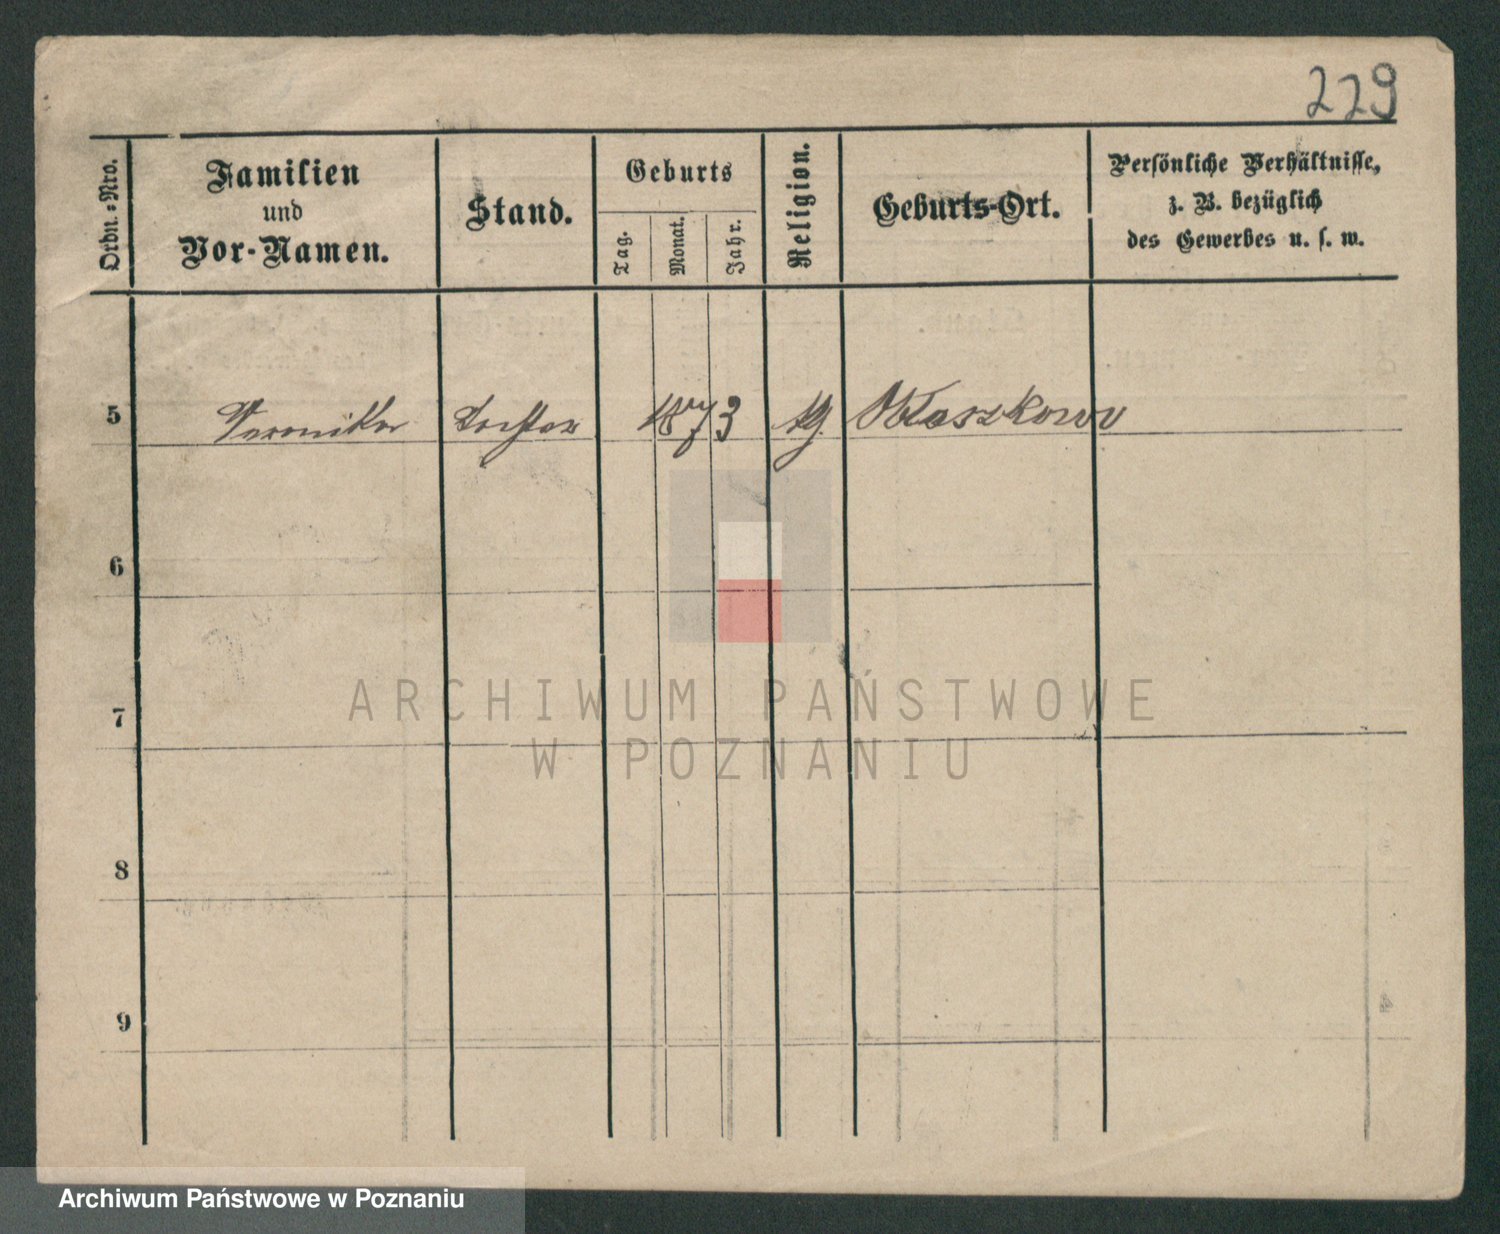 229
Ordn.=Nro.
Familien
und
Vor-Namen.
Stand.
Geburts
Tag.
Monat.
Jahr.
Religion.
Geburts-Ort.
Persönliche Verhältnisse,
z. B. bezüglich
des Gewerbes u. s. w.
5 Veronika Tochter 1873
6
7
8
9
ARCHIWUM PAŃSTWOWE
W POZNANIU
Archiwum Państwowe w Poznaniu